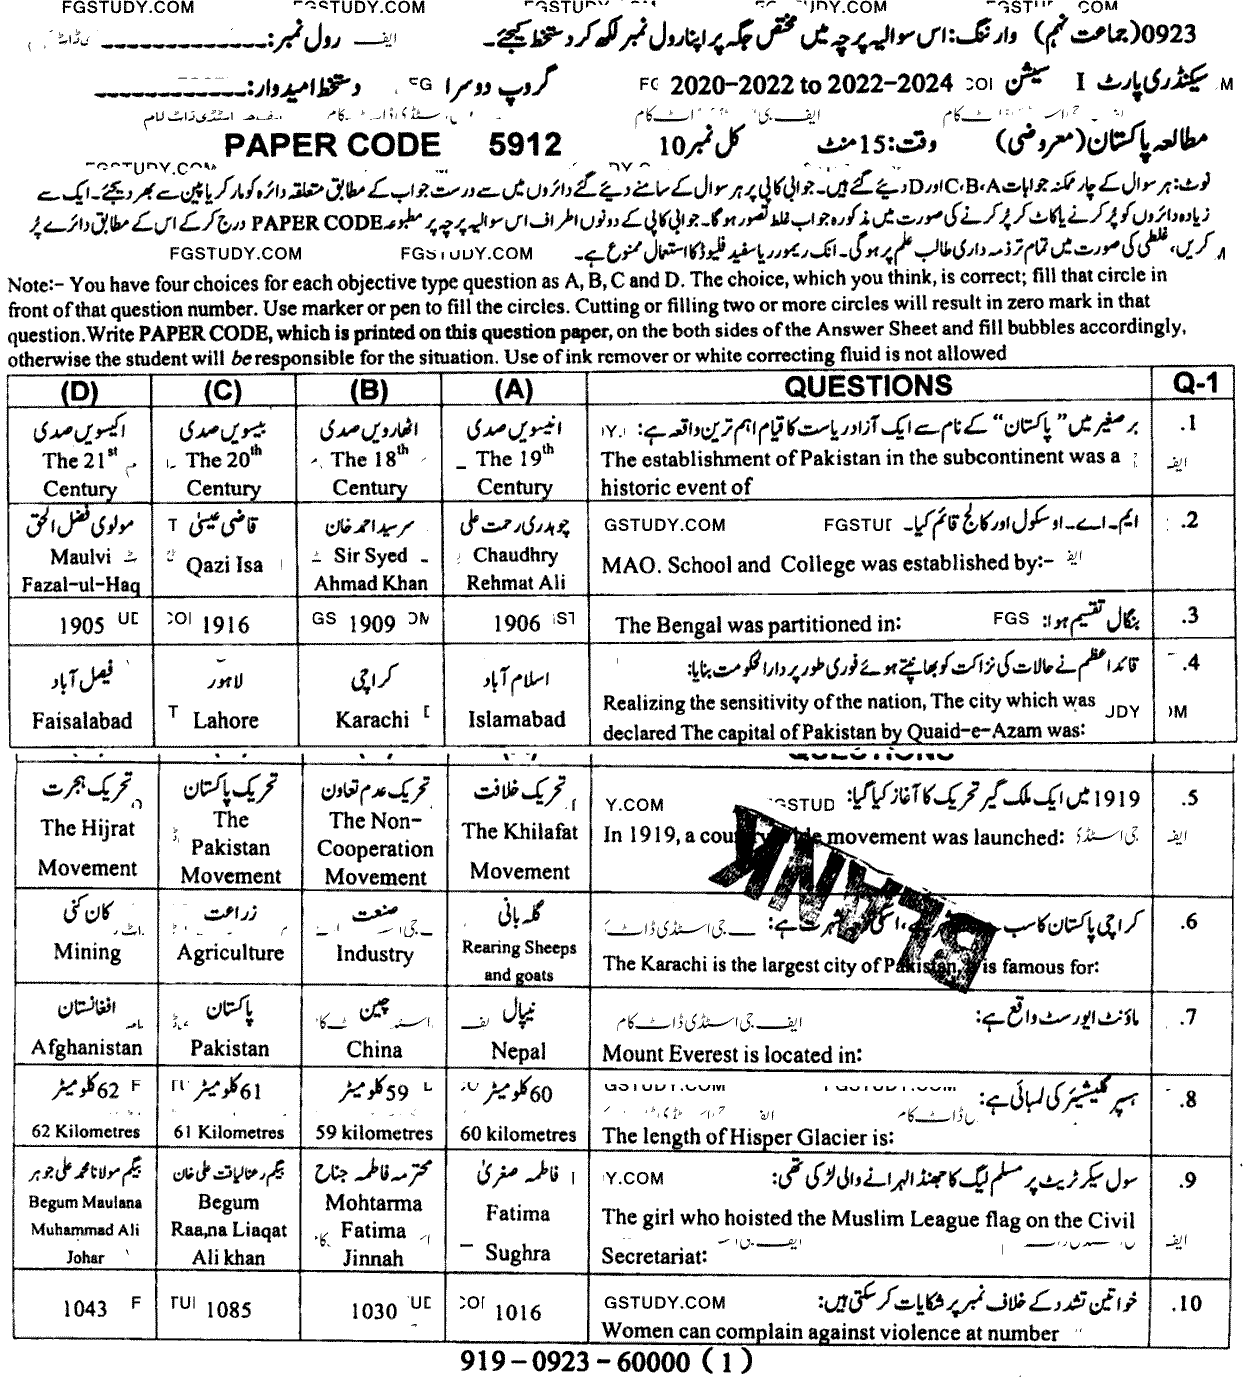 FGSTUDY.COM
0923(جماعت نہم) وارننگ: اس سوالیہ پرچہ میں مختص جگہ پر اپنا رول نمبر لکھ کر دستخط کیجئے۔ رول نمبر: ____________
سیکنڈری پارٹ I سیشن 2020-2022 to 2022-2024 گروپ دوسرا دستخط امیدوار: ____________
مطالعہ پاکستان (معروضی) وقت: 15 منٹ کل نمبر 10 PAPER CODE 5912
نوٹ: ہر سوال کے چار ممکنہ جوابات C،B،A اور D دیئے گئے ہیں۔ جوابی کاپی پر ہر سوال کے سامنے دیئے گئے دائروں میں سے درست جواب کے مطابق متعلقہ دائرہ کو مارکر یا پین سے بھر دیجئے۔ ایک سے
زیادہ دائروں کو پُر کرنے یا کاٹ کر پُر کرنے کی صورت میں مذکورہ جواب غلط تصور ہوگا۔ جوابی کاپی کے دونوں اطراف اس سوالیہ پرچہ پر مطبوعہ PAPER CODE درج کر کے اس کے مطابق دائرے پُر
کریں، غلطی کی صورت میں تمام تر ذمہ داری طالب علم پر ہوگی۔ انک ریموور یا سفید فلیوڈ کا استعمال ممنوع ہے۔
FGSTUDY.COM FGSTUDY.COM
Note:- You have four choices for each objective type question as A, B, C and D. The choice, which you think, is correct; fill that circle in
front of that question number. Use marker or pen to fill the circles. Cutting or filling two or more circles will result in zero mark in that
question.Write PAPER CODE, which is printed on this question paper, on the both sides of the Answer Sheet and fill bubbles accordingly,
otherwise the student will be responsible for the situation. Use of ink remover or white correcting fluid is not allowed
(D) (C) (B) (A) QUESTIONS Q-1
.1 برصغیر میں "پاکستان" کے نام سے ایک آزاد ریاست کا قیام اہم ترین واقعہ ہے:
The establishment of Pakistan in the subcontinent was a
historic event of
انیسویں صدی
The 19th
Century
اٹھارویں صدی
The 18th
Century
بیسویں صدی
The 20th
Century
اکیسویں صدی
The 21st
Century
.2 ایم۔اے۔او سکول اور کالج قائم کیا۔
MAO. School and College was established by:-
چوہدری رحمت علی
Chaudhry
Rehmat Ali
سرسید احمد خان
Sir Syed
Ahmad Khan
قاضی عیسیٰ
Qazi Isa
مولوی فضل الحق
Maulvi
Fazal-ul-Haq
.3 بنگال تقسیم ہوا:
The Bengal was partitioned in:
1906
1909
1916
1905
.4 قائداعظم نے حالات کی نزاکت کو بھانپتے ہوئے فوری طور پر دارالحکومت بنایا:
Realizing the sensitivity of the nation, The city which was
declared The capital of Pakistan by Quaid-e-Azam was:
اسلام آباد
Islamabad
کراچی
Karachi
لاہور
Lahore
فیصل آباد
Faisalabad
.5 1919 میں ایک ملک گیر تحریک کا آغاز کیا گیا:
In 1919, a country wide movement was launched:
تحریک خلافت
The Khilafat
Movement
تحریک عدم تعاون
The Non-
Cooperation
Movement
تحریک پاکستان
The
Pakistan
Movement
تحریک ہجرت
The Hijrat
Movement
BLANK
.6 کراچی پاکستان کا سب
The Karachi is the largest city of Pakistan, is famous for:
گلہ بانی
Rearing Sheeps
and goats
صنعت
Industry
زراعت
Agriculture
کان کنی
Mining
.7 ماؤنٹ ایورسٹ واقع ہے:
Mount Everest is located in:
نیپال
Nepal
چین
China
پاکستان
Pakistan
افغانستان
Afghanistan
.8 ہسپر گلیشیئر کی لمبائی ہے:
The length of Hisper Glacier is:
60 کلومیٹر
60 kilometres
59 کلومیٹر
59 kilometres
61 کلومیٹر
61 Kilometres
62 کلومیٹر
62 Kilometres
.9 سول سیکرٹریٹ پر مسلم لیگ کا جھنڈا لہرانے والی لڑکی تھی:
The girl who hoisted the Muslim League flag on the Civil
Secretariat:
فاطمہ صغریٰ
Fatima
Sughra
محترمہ فاطمہ جناح
Mohtarma
Fatima
Jinnah
بیگم رعنا لیاقت علی خان
Begum
Raa,na Liaqat
Ali khan
بیگم مولانا محمد علی جوہر
Begum Maulana
Muhammad Ali
Johar
.10 خواتین تشدد کے خلاف نمبر پر شکایات کر سکتی ہیں:
Women can complain against violence at number
1016
1030
1085
1043
919-0923-60000 (1)